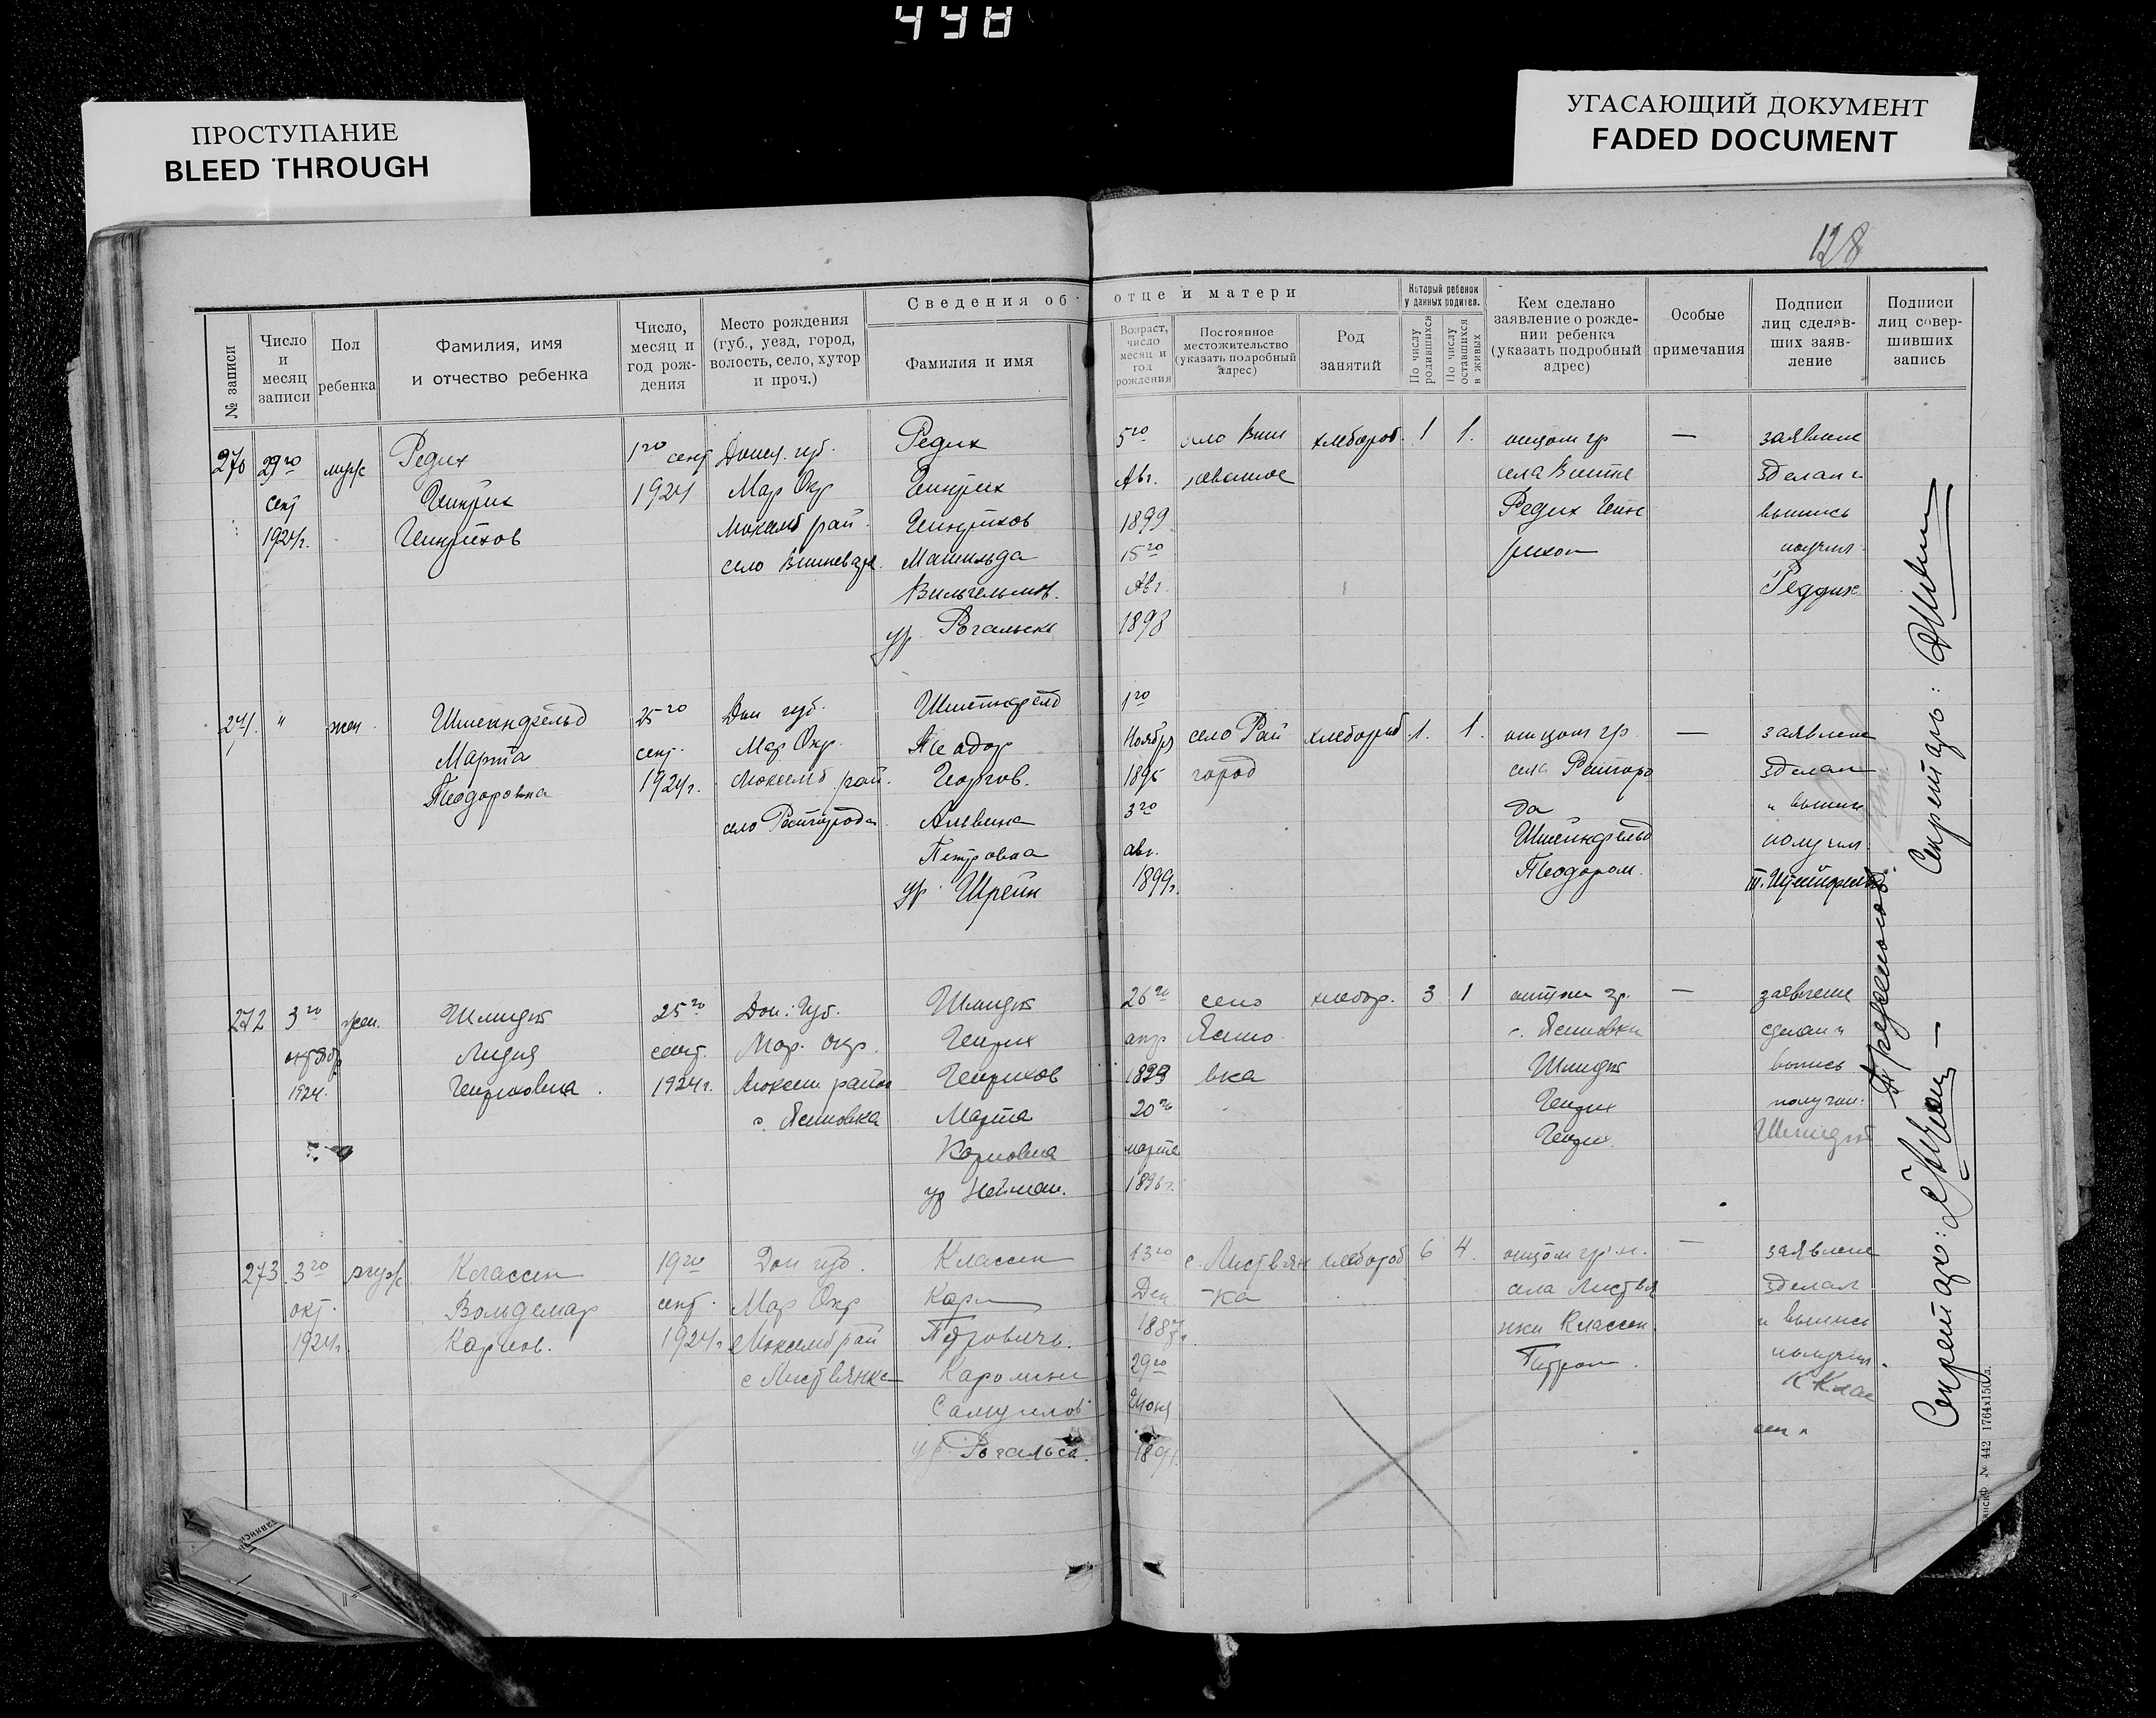 498
ПРОСТУПАНИЕ
BLEED THROUGH
УГАСАЮЩИЙ ДОКУМЕНТ
FADED DOCUMENT
128
Сведения об отце и матери
№ записи
Число и месяц записи
Пол ребенка
Фамилия, имя и отчество ребенка
Число, месяц и год рождения
Место рождения (губ., уезд, город, волость, село, хутор и проч.)
Фамилия и имя
Возраст, число месяц и год рождения
Постоянное местожительство (указать подробный адрес)
Род занятий
Который ребенок у данных родител.
По числу родившихся
По числу оставшихся в живых
Кем сделано заявление о рождении ребенка (указать подробный адрес)
Особые примечания
Подписи лиц сделавших заявление
Подписи лиц совершивших запись
270 29го муж Редих 1го сент Донец. губ. Редих 5го село Виш хлебороб. 1 1. отцом гр — заявление
сент Гинрих 1924 Мар Окр Гинрих Авг. неватое села Вишне зделал и
1924г. Гинрихов Люксемб рай. Гинрихов 1899 Редих Гин выпись
село Матильда 15го рихом получил
Вильгельмов. Авг. Реддих
ур Рогальска 1898
271. " жен Штейнфельд 25го Дон губ. Штейнфельд 1го село Рай хлебороб. 1. 1. отцом гр — заявление
Марта сент. Мар Окр. Теодор Ноября город села Райгоро зделал
Теодоровна 1924г. Люксемб рай. Георгов. 1895 да и выпись
село Райгород Альвина 3го Штейнфельд получил
Петровна авг. Теодором.
ур. Шрейн 1899г.
272 3го жен. Шмидт 25го Дон. Губ. Шмидт 26го село хлебор. 3 1 отцом гр. — заявление
октябр Лидия сент. Мар. окр. Генрих апр Ясино с. Ясиновки сделал и
1924. Генриховна 1924г. Люксем район Генрихов вка Шмидт выпись
с. Ясиновка Марта 20го Генрих получил
Карловна марта Генрих Шмидт
ур Нейман. 1896г.
273. 3го муж. Классен 19го Дон губ. Классен 13го с. Листвян хлебороб 6 4. отцом гр. — заявление
окт. Вольдемар сент. Мар Окр Карл Дек ка села Листвя зделал
1924г. Карлов. 1924г. Люксемб рай Петрович. нки Классен. и выпись
с Листвянка 29го получил.
Самуилов Июня К Клас
ур Рогальса. 1891 сен
Секретарь:
Секретарь:
№ 442 1764х150л.